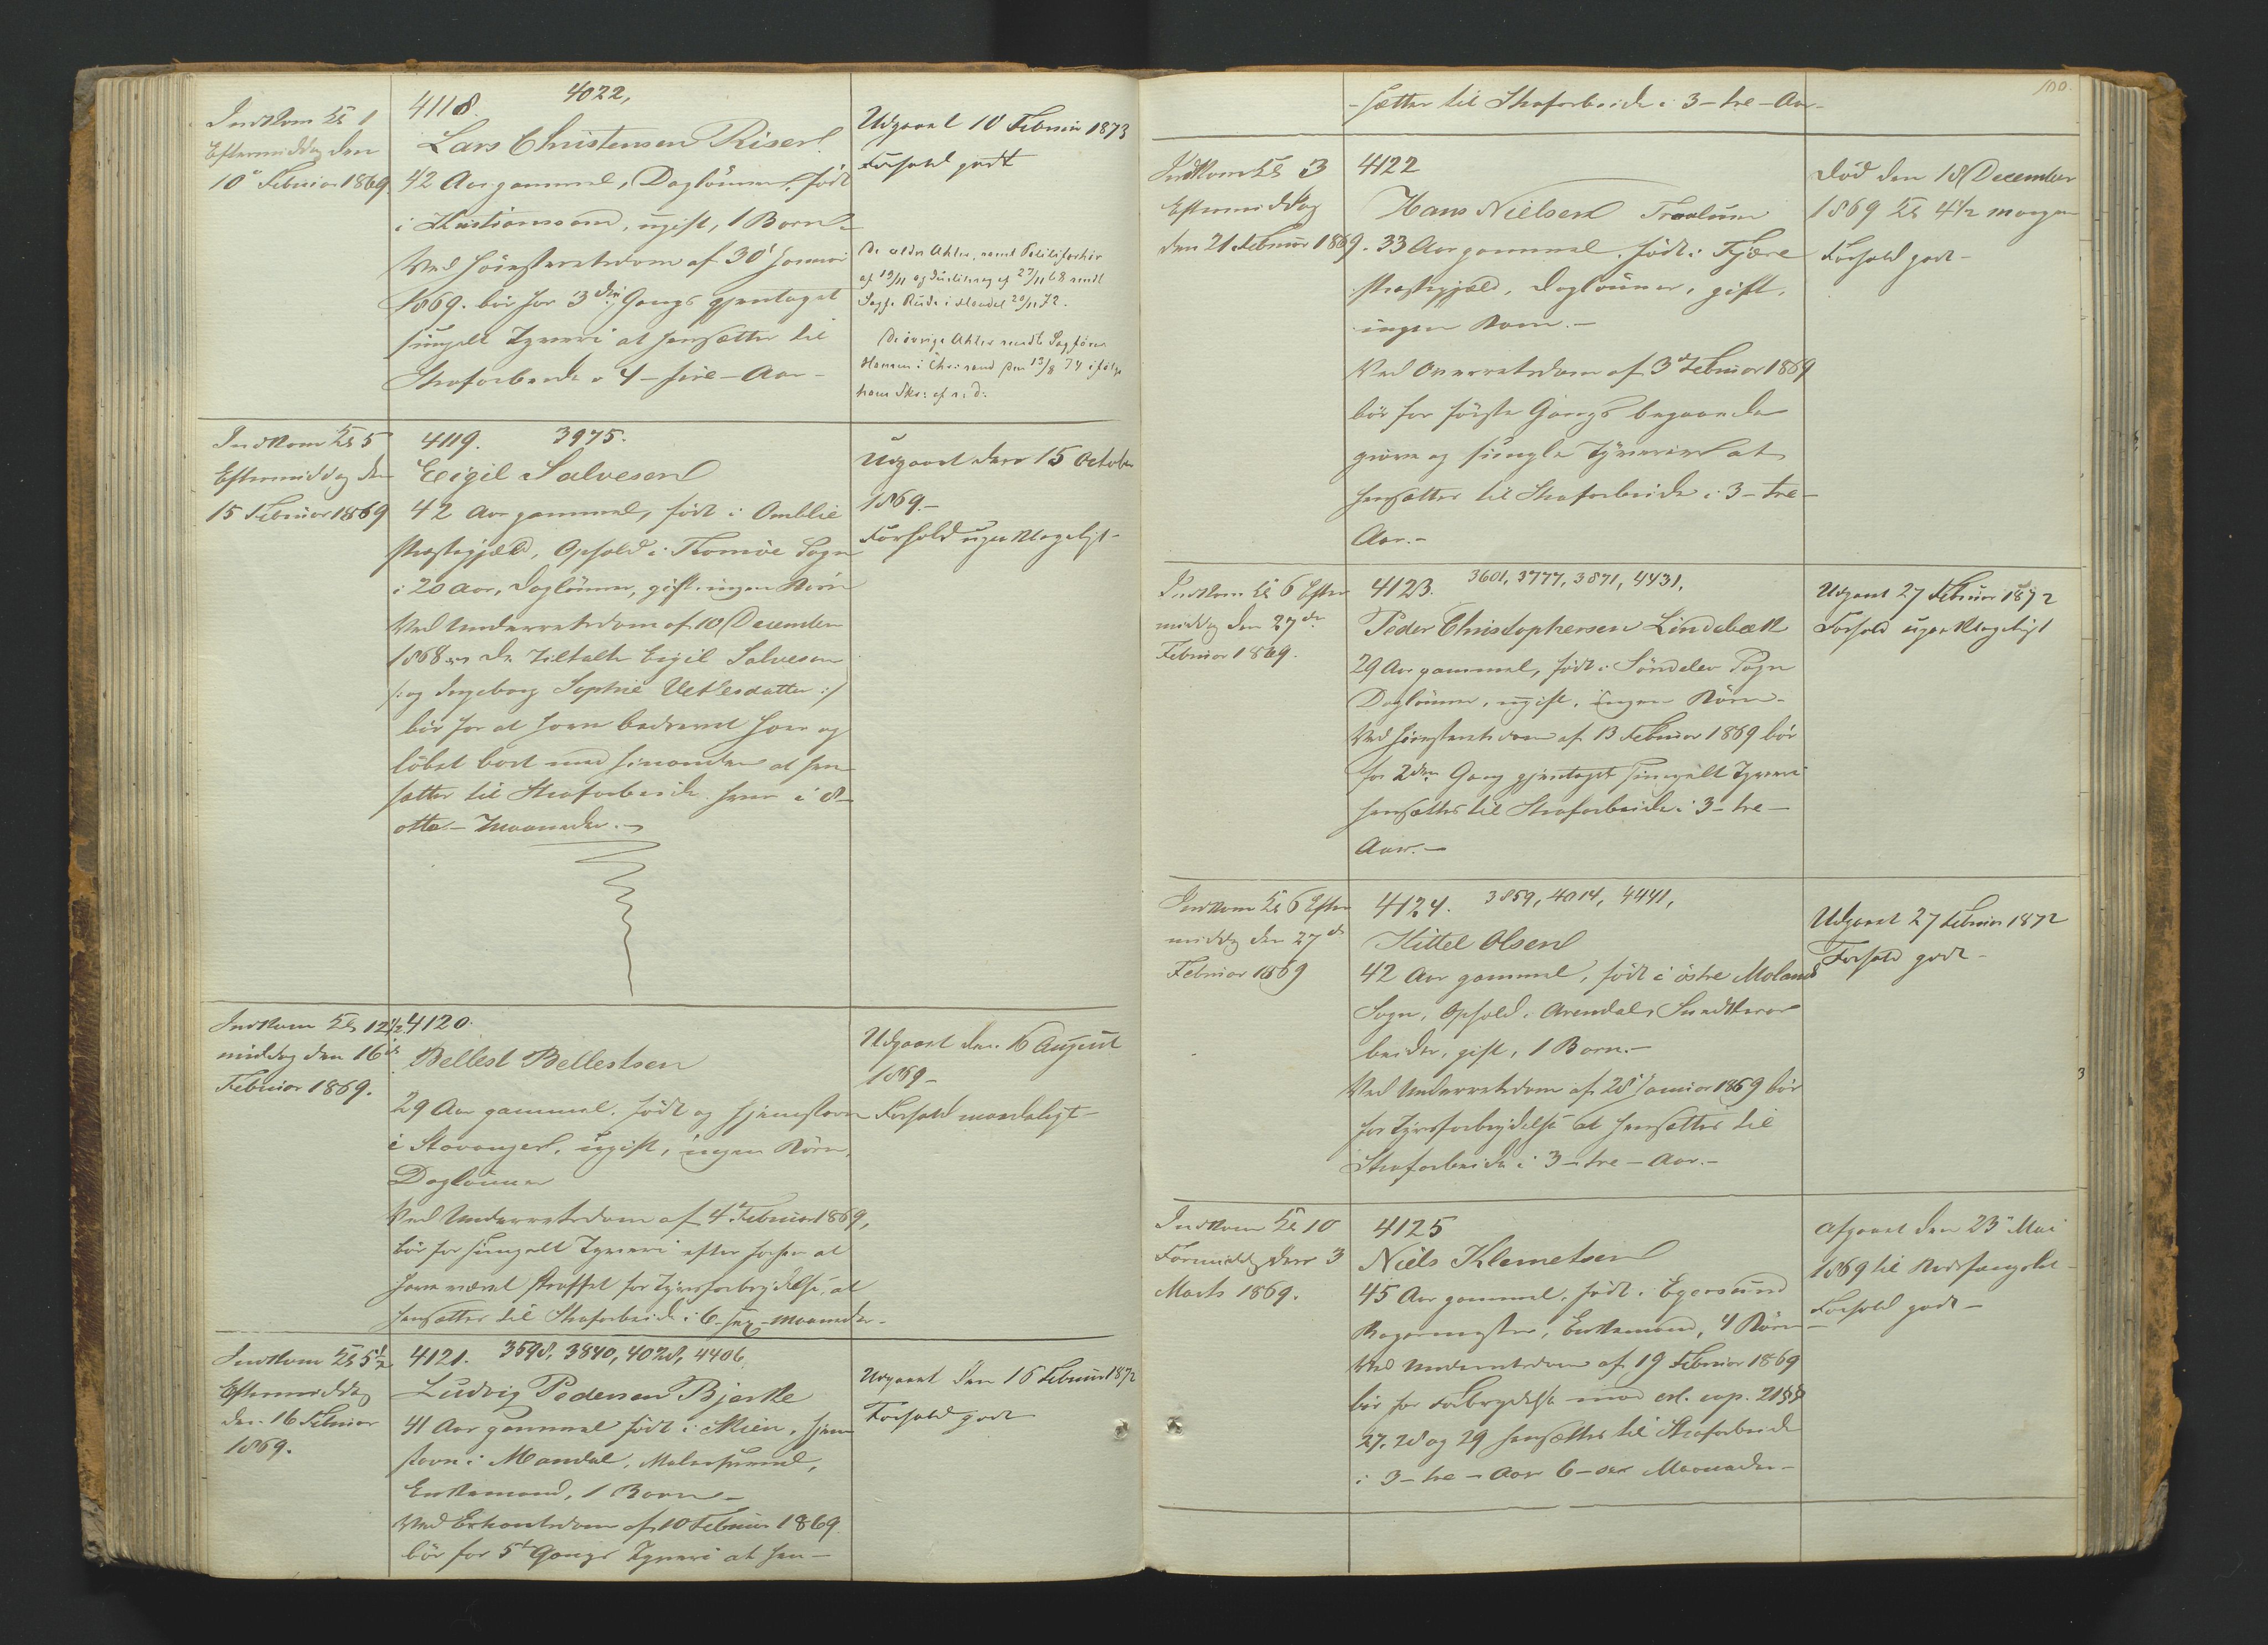 Indkom Kl 1
Eftermiddag den
10de Februar 1869
4118. 4022,
Lars Christensen Riser
42 Aar gammel, Daglönner, født
i Kristianssand, ugift, 1 Barn
Ved Höiesteretsdom af 30te Januar
1869. bör for 3die Gangs gjentaget
simpelt Tyveri at hensættes til
Strafarbeide i 4 - fire - Aar -
Udgaaet 10 Februar 1873
Forhold godt
De ældre Akter, samt Politiforhör
af 19/11 og 27/11 68 sendt
Sagf. i Mandal 20/11 72.
De övrige Akter sendte Sagförer
Hansen i Chrsand den 13/8 74 ifölge
hans Skr: af s. d.
Indkom Kl 5
Eftermiddag den
15 Februar 1869
4119. 3975.
Eigil Salvesen
42 Aar gammel, født i Omblie
Præstegjæld, Ophold i Tromöe Sogn
i 20 Aar, Daglönner, gift, ingen Börn
Ved Underretsdom af 10 December
1868 de Tiltalte Eigil Salvesen
/: og Ingeborg Sophie Vetlesdatter :/
bör for at have bedrevet Hoer og
löbet bort med hinanden at hen-
sættes til Strafarbeide hver i 8 -
otte - Maaneder. -
Udgaaet den 15 October
1869. -
Forhold upaaklageligt -
Indkom Kl 12 1/2
middag den 16de
Februar 1869.
4120.
Bellest Bellestsen
29 Aar gammel, født og hjemstavn
i Stavanger, ugift, ingen Börn,
Daglönner
Ved Underretsdom af 4de Februar 1869,
bör for simpelt Tyveri efter forhen at
have været straffet for Tyvsforbrydelse, at
hensættes til Strafarbeide i 6 - sex - Maaneder -
Udgaaet den 16 August
1869 -
Forhold maadeligt -
Indkom Kl 5 1/2
Eftermiddag
den 16 Februar
1869.
4121. 3598, 3840, 4028, 4406
Ludvig Pedersen Bjerke
41 Aar gammel født i Skien, hjem-
stavn i Mandal, Malersvend,
Enkemand, 1 Barn -
Ved Extraretsdom af 10 Februar 1869
bör for 5te Gangs Tyveri at hen-
Udgaaet den 16 Februar 1872
Forhold godt
100.
- sættes til Strafarbeide i 3 - tre - Aar -
Indkom Kl 3
Eftermiddag
den 21. Februar 1869.
4122
Hans Nielsen
33 Aar gammel, født i Fjære
Præstegjæld, Daglönner, gift,
ingen Barn. -
Ved Overretsdom af 3de Februar 1869
bör for förste Gangs begaaede
grove og simple Tyverier at
hensættes til Strafarbeide i 3 - tre -
Aar. -
Död den 18 December
1869 Kl 4 1/2 morgen
Forhold godt -
Indkom Kl 6 Efter-
middag den 27de
Februar 1869.
4123. 3601, 3777, 3871, 4431,
Peder Christophersen Lindebæk
29 Aar gammel, født i Söndelev Sogn
Daglönner, ugift, ingen Börn -
Ved Höiesteretsdom af 13 Februar 1869 bör
for 2den Gang gjentaget simpelt Tyveri
hensættes til Strafarbeide i 3 - tre -
Aar. -
Udgaaet 27 Februar 1872
Forhold upaaklageligt
Indkom Kl 6 Efter-
middag den 27de
Februar 1869
4124. 3859, 4014, 4441,
Kittel Olsen
42 Aar gammel, født i östre Moland
Sogn, Ophold i Arendal, Snedkerar-
beider, gift, 1 Barn. -
Ved Underretsdom af 28de Januar 1869 bör
for Tyvsforbrydelse at hensættes til
Strafarbeide i 3 - tre - Aar. -
Udgaaet 27 Februar 1872
Forhold godt -
Indkom Kl 10
Formiddag den 3
Marts 1869.
4125
Niels Klemetsen
45 Aar gammel, født i Egersund
Bagermester, Enkemand, 4 Börn
Ved Underretsdom af 19 Februar 1869
bör for Forbrydelse mod crl. cap. 21 §§
27, 28 og 29 hensættes til Strafarbeide
i 3 - tre - Aar 6 - sex Maaneder -
Afgaaet den 23de Mai
1869 til Bodsfængslet -
Forhold godt -